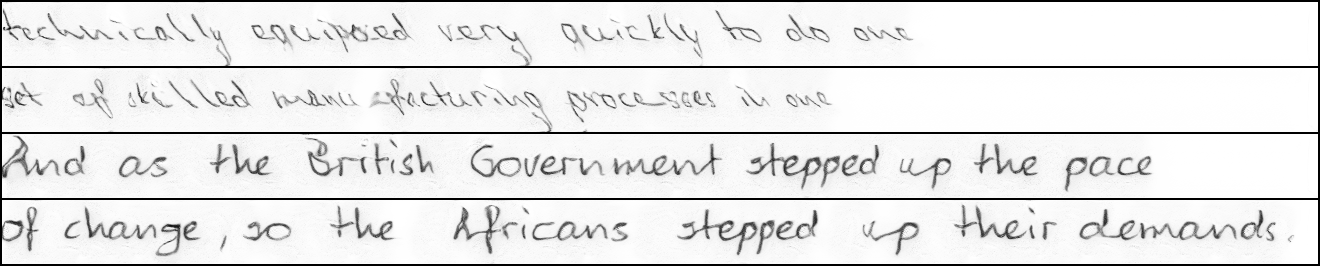 technically equipped very quickly to do one
set of skilled manufacturing processes in one
And as the British Government stepped up the pace
of change, so the Africans stepped up their demands.